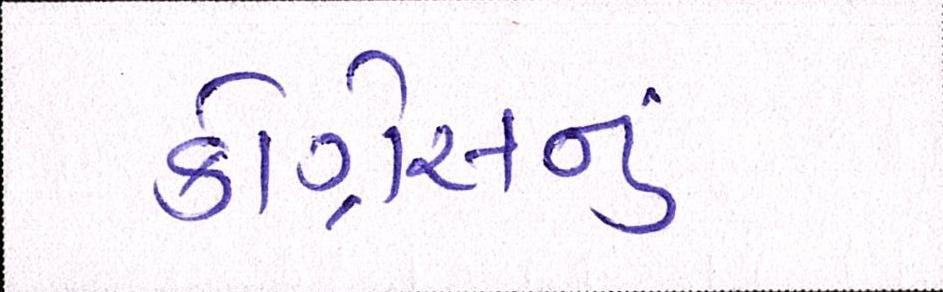 કોગ્રેસનું